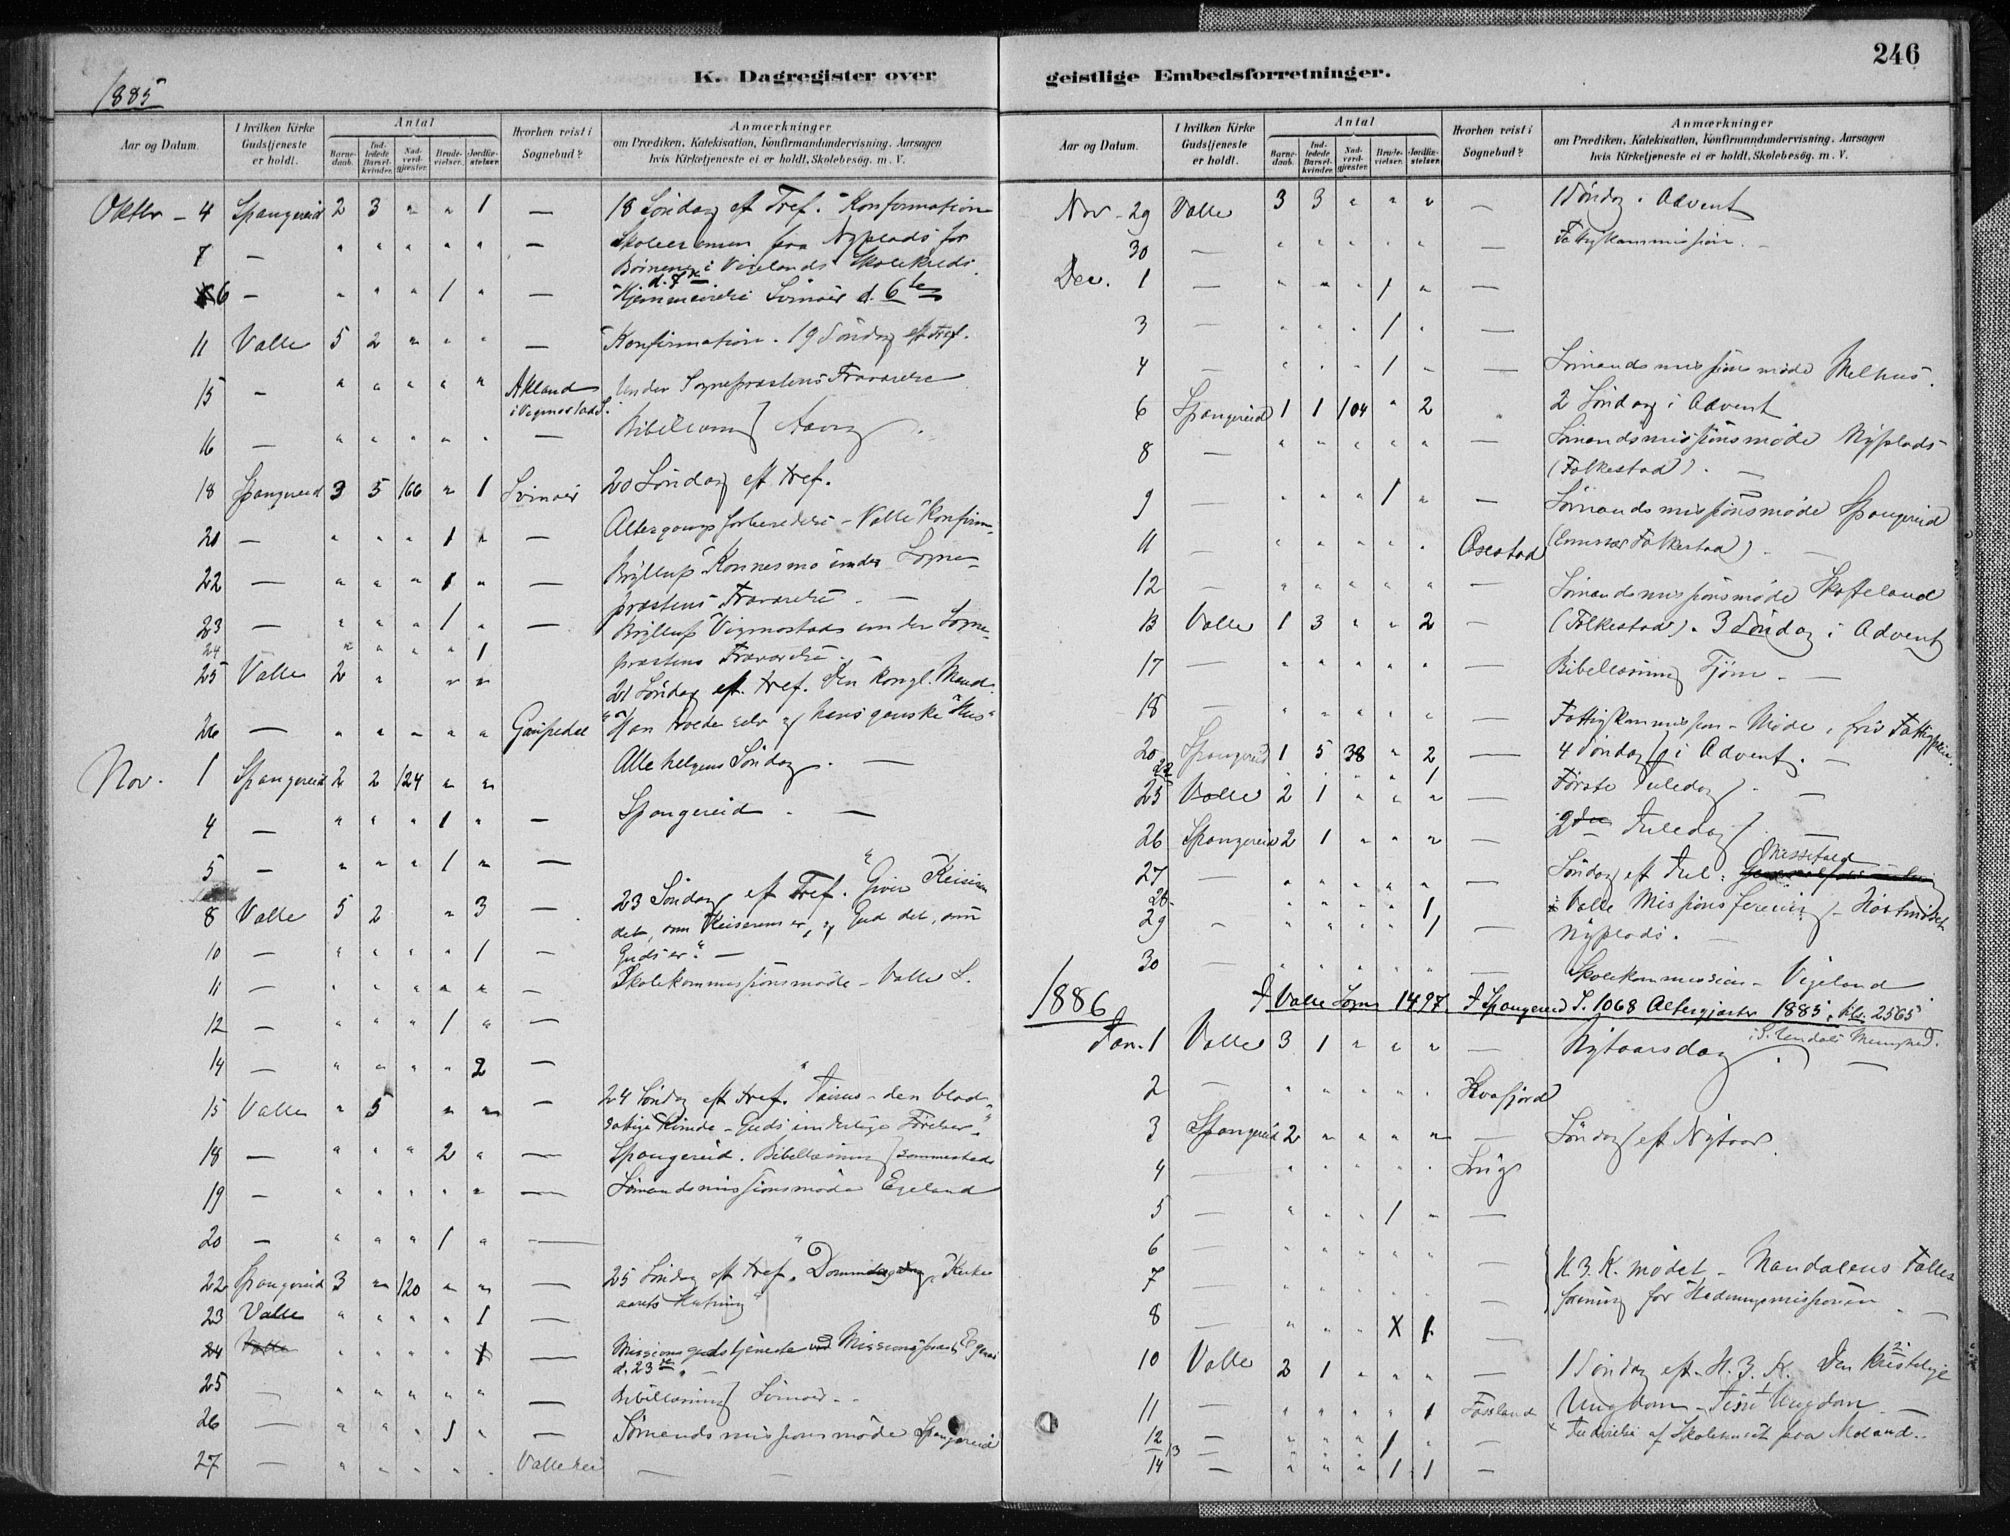 246
K. Dagregister over geistlige Embedsforretninger.
1885
Aar og Datum. | I hvilken Kirke Gudstjeneste er holdt. | Antal | Barnedaab. | Indledede Barselkvinder. | Nadverdgjæster. | Brudevielser. | Jordfæstelser. | Hvorhen reist i Sognebud? | Anmærkninger om Prædiken, Katekisation, Konfirmandundervisning, Aarsagen hvis Kirketjeneste ei er holdt, Skolebesøg. m. V.
Oktbr - 4 Spangereid 2 3 " " 1 — 18 Søndag eft Tref. Konfirmation
7 — " " " " " — Skoleexamen paa Nyplads for
Børnene i Vigelands Skolekreds
d. 7de
6 — " " " 1 " — Hjemmevielse Svinør d. 6te
11 Valle 5 2 " " " — Konfirmation. 19 Søndag eft Tref.
15 - " " " " " Akland i Vigmostad S. Under Sognepræstens Fraværelse
16 — " " " " " — Bibellæsning
18 Spangereid 3 5 166 " 1 Svinør 20 Søndag eft Tref.
Altergangsforberedelse - Valle Konfirm.
20 — " " " 1 " —
22 — " " " 1 " — Bryllup Konnesmo under Sogne-
præstens Fraværelse. —
23 — " " " 1 " — Bryllup Vigmostads under Sogne-
24 " " " " 1 præstens Fraværelse. —
25 Valle 2 " " " 21 Søndag eft. Tref. Den Kongl. Mand.
26 — " " " " " Gaupedal "Han troede selv og hans ganske Hus"
Nov. 1 Spangereid 2 2 124 " " Alle helgens Søndag. —
4 — " " " 1 " — Spangereid. —
5 — " " " 1 " —
8 Valle 5 2 " 3 — 23 Søndag eft Tref. "Giver Keiseren
det, som Keiserens er, og Gud det, som
10 — " " " " 1 — Guds er." —
11 — " " " " " — Skolekommissionsmøde - Valle S.
12 — " " " 1 " —
14 — " " " " 2 —
15 Valle " 5 " " — 24 Søndag eft Tref. "Jairus - den blod-
sottige Kvinde -
18 — " " " 2 " — Spangereid. Bibellæsning
19 - " " " " " — Sømandsmissionsmøde Egeland
20 - " " " 1 " —
22 Spangereid 3 " 120 " " — 25 Søndag eft Tref. Dommedag, Kirke
aarets Slutning"
23 Valle " " " " 1
24 Valle " " " " 1 — Missionsgudstjeneste ved Missionspræst
d. 23de. -
25 — " " " " " — Bibellæsning Svinør - -
26 — " " " 1 " — Sømandsmissionsmøde Spangereid
27 — " " " " " Valle hei — —
Aar og Datum. | I hvilken Kirke Gudstjeneste er holdt. | Antal | Barnedaab. | Indledede Barselkvinder. | Nadverdgjæster. | Brudevielser. | Jordfæstelser. | Hvorhen reist i Sognebud? | Anmærkninger om Prædiken, Katekisation, Konfirmandundervisning, Aarsagen hvis Kirketjeneste ei er holdt, Skolebesøg. m. V.
Nov - 29 Valle 3 3 " " " — 1 Søndag i Advent
30 — " " " " " — Fattigkommission. -
Dec. 1 — " " " 1 " —
3 — " " " 1 " —
4 — " " " 1 " — Sømandsmissionsmøde Melhus.
6 Spangereid 1 1 104 " 2 " 2 Søndag i Advent
8 — " " " " " — Sømandsmissionsmøde Nyplads
(Folkestad). —
9 — " " " 1 " — Sømandsmissionsmøde Spangereid
11 — " " " " " Osestad (Emissær Folkestad). —
12 — " " " " " — Sømandsmissionsmøde Skofteland
13 Valle 1 3 " " 2 - (Folkestad). 3 Søndag i Advent
17 — " " " " " — Bibellæsning Tjøm. —
18 — " " " " " — Fattigkommission - Møde,
20 Spangereid 1 5 38 " 2 — 4 Søndag i Advent. —
22 " " " " 1
25 Valle 2 1 " " " — Første Juledag. —
26 Spangereid 2 1 " " " — 2den Juledag. —
27 — " " " " " — Søndag eft Jul: Messefald
28 " " " " 1 i Valle Missionsforening - Høstmødet
29 - " " " " 1 — Nyplads. —
30 — " " " " " — Skolekommission - Vigeland
1886 I Valle Sogn 1497. I Spangereid S. 1068 Altergjæster 1885, tils. 2565
i S. Undals Menighed.
Jan. 1 Valle 3 1 " " " — Nytaarsdag. —
2 — " " " " " Kvafjord
3 Spangereid 2 " " " " — Søndag eft Nytaar.
4 — " " " " "
5 — " " " 1 " —
6 " " " " " —
7 — " " " " " — H. 3. K. mødet - Mandalens Fælles
forening for Hedningemissionen
8 — " " " X 1 — —
10 Valle 2 1 " " " — 1 Søndag eft. H. 3. K. Den kristelige
11 — " " " " 1 Fossland Ungdom - Jesu Ungdom —
12 — " " " 1 " — Indvielse af Skolehuset paa Moland. -
13
14 — " " " 1 1 —